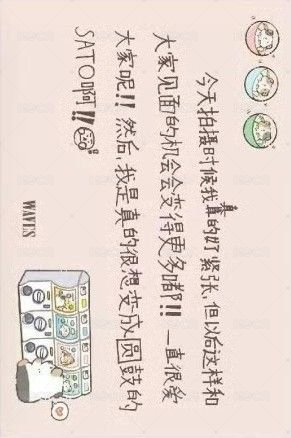 今天拍摄时候我真的好紧张,但以后这样和
大家见面的机会会变得更多嘟!! 一直很爱
大家呢!! 然后,我是真的很想变成圆鼓的
SATO啊!!
WAVES